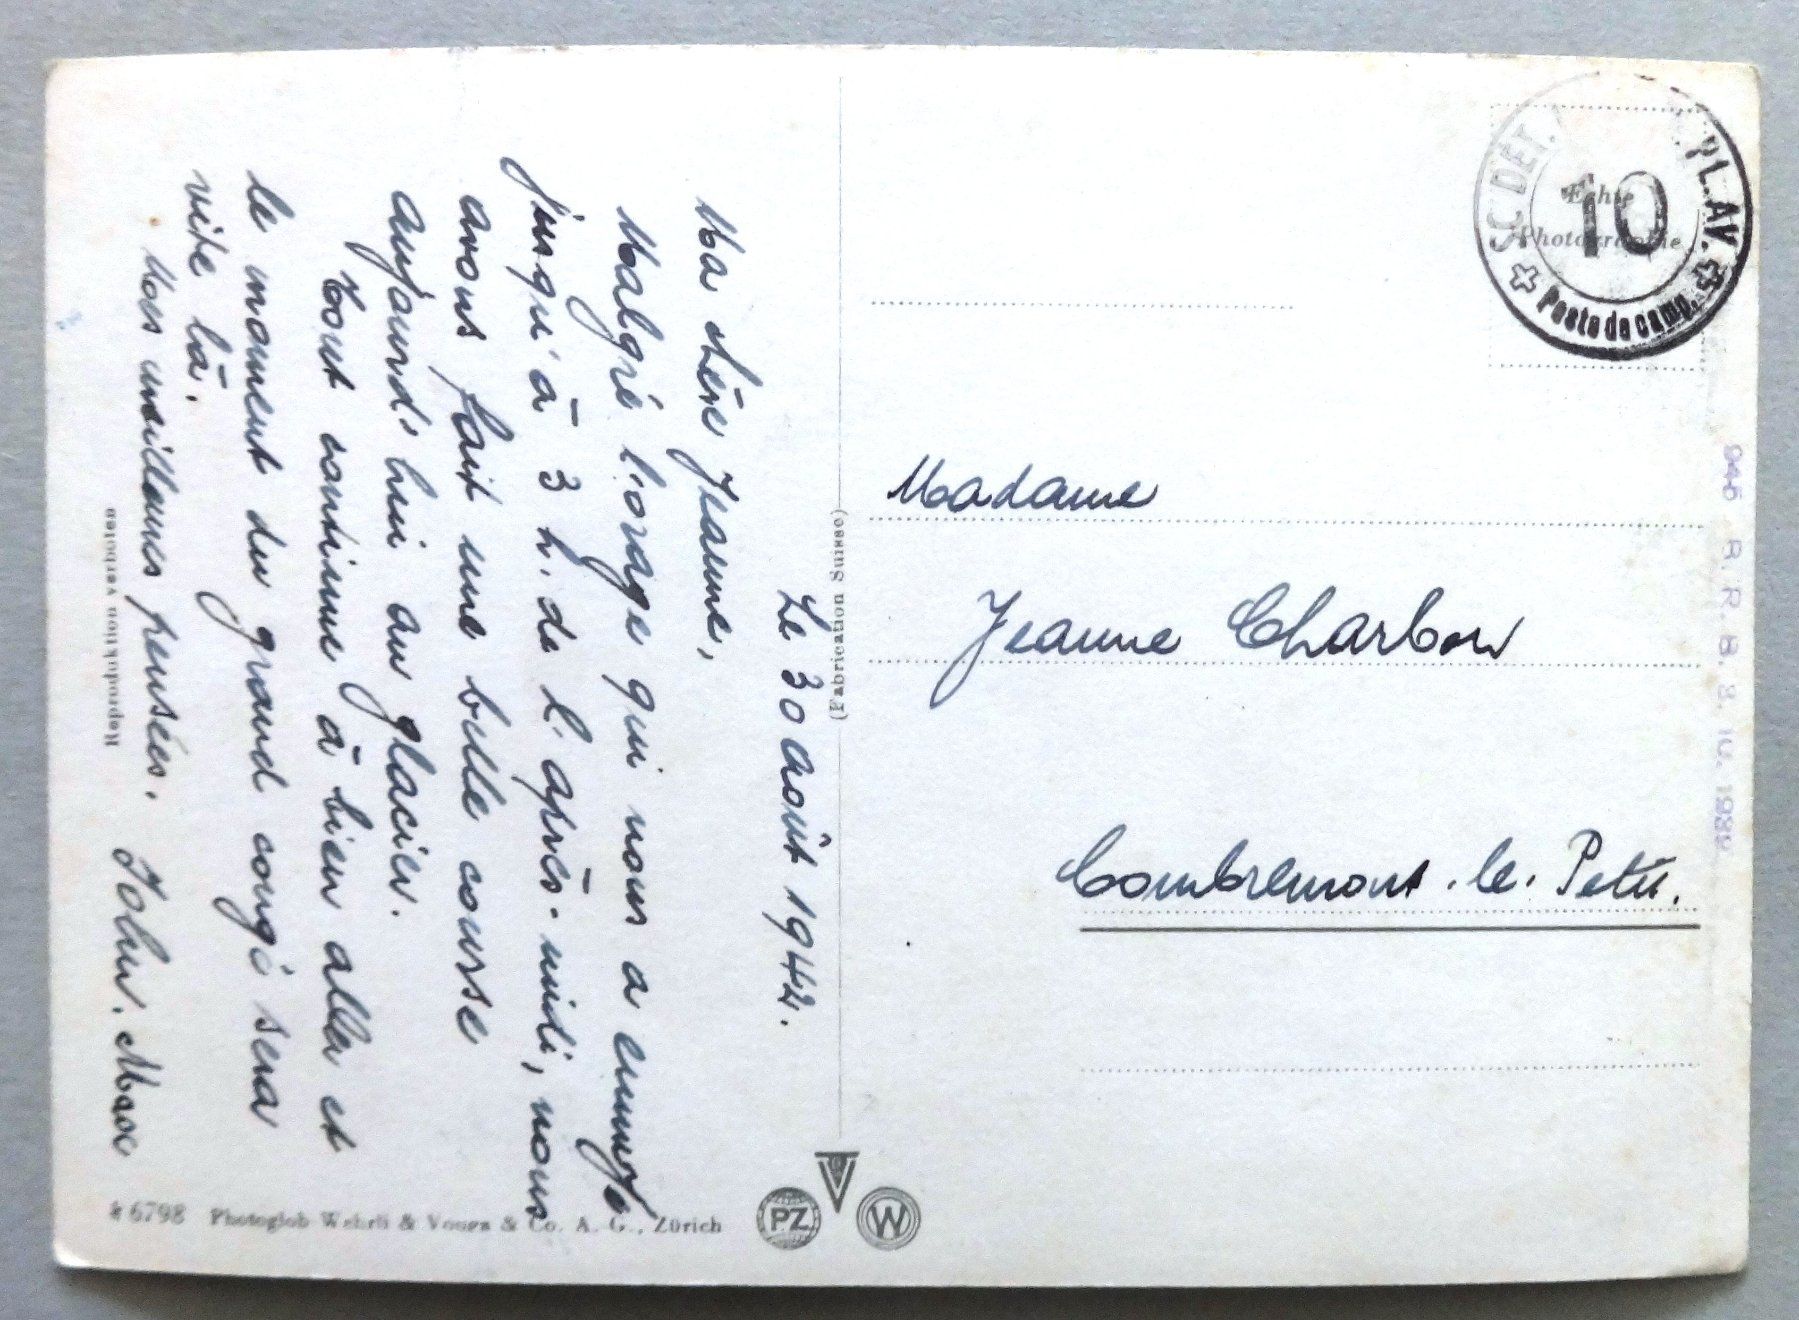 Le 30 Août 1942.
Ma chère Jeanne,
Malgré l'orage qui nous a ennuyé
jusqu'à 3 h. de l'après-midi, nous
avons fait une belle course
aujourd'hui au glacier.
Tout continue à bien aller et
le moment du grand congé sera
vite là.
Mes meilleures pensées.
Max
Madame
Jeanne Charbon
Combremont-le-Petit.
SC DÉT. PL. AV.
10
Poste de camp.
Echte
Photographie
(Fabrication Suisse)
Reproduktion verboten
6798 Photoglob-Wehrli & Vouga & Co. A. G., Zürich
PZ
V
W